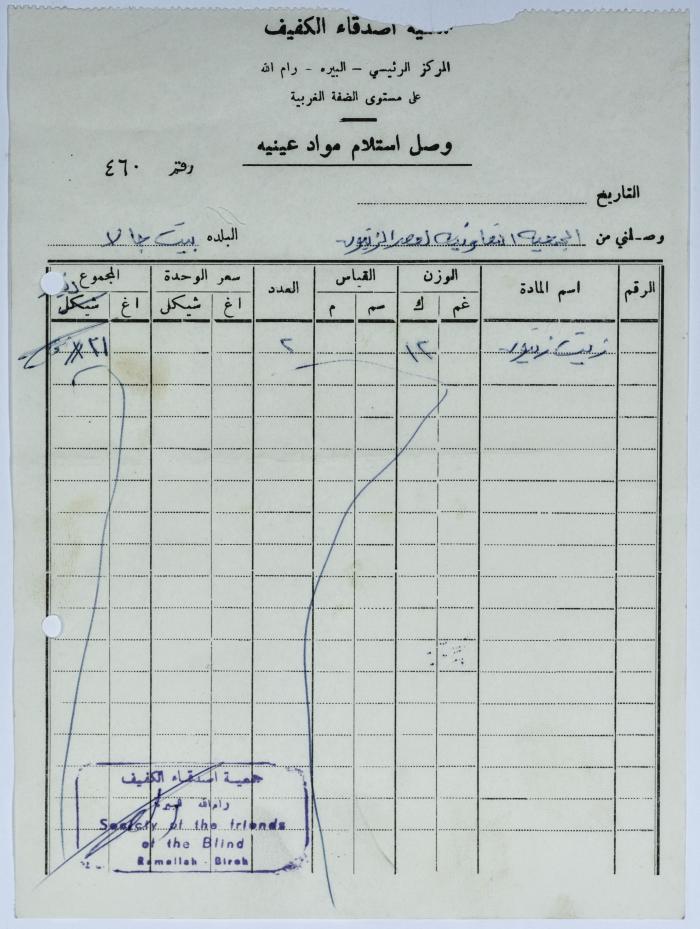 أصدقاء الكفيف
المركز الرئيسي – البيره – رام الله
على مستوى الضفة الغربية
وصل استلام مواد عينيه
رقم ٤٦٠
التاريخ
وصلني من الجمعية التعاونية لعصر الزيتون البلده بيت جالا
الرقم اسم المادة الوزن القياس العدد سعر الوحدة المجموع
غم ك سم م اغ شيكل اغ شيكل
زيت زيتون ١٢ ٢ ٢١
جمعية اصدقاء الكفيف
رام الله البيرة
Society of the friends
of the Blind
Ramallah - Bireh